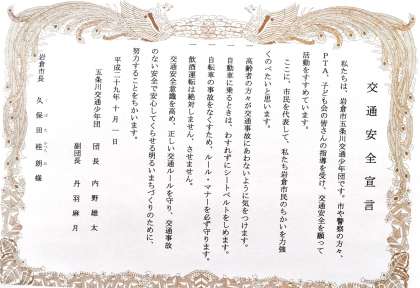 交通安全宣言
私たちは、岩倉市五条川交通少年団です。市や警察の方々、
PTA、子ども会の皆さんの指導を受け、交通安全を願って
活動をすすめています。
ここに、市民を代表して、私たち岩倉市民のちかいを力強
くのべたいと思います。
一 高齢者の方々が交通事故にあわないように気をつけます。
一 自動車に乗るときは、わすれずにシートベルトをしめます。
一 自転車の事故をなくすため、ルール・マナーを必ず守ります。
一 飲酒運転は絶対しません、させません。
交通安全意識を高め、正しい交通ルールを守り、交通事故
のない安全で安心してくらせる明るいまちづくりのために、
努力することをちかいます。
平成二十九年十月一日
五条川交通少年団 団長 内野雄太
副団長 丹羽麻月
岩倉市長 久保田桂朗様